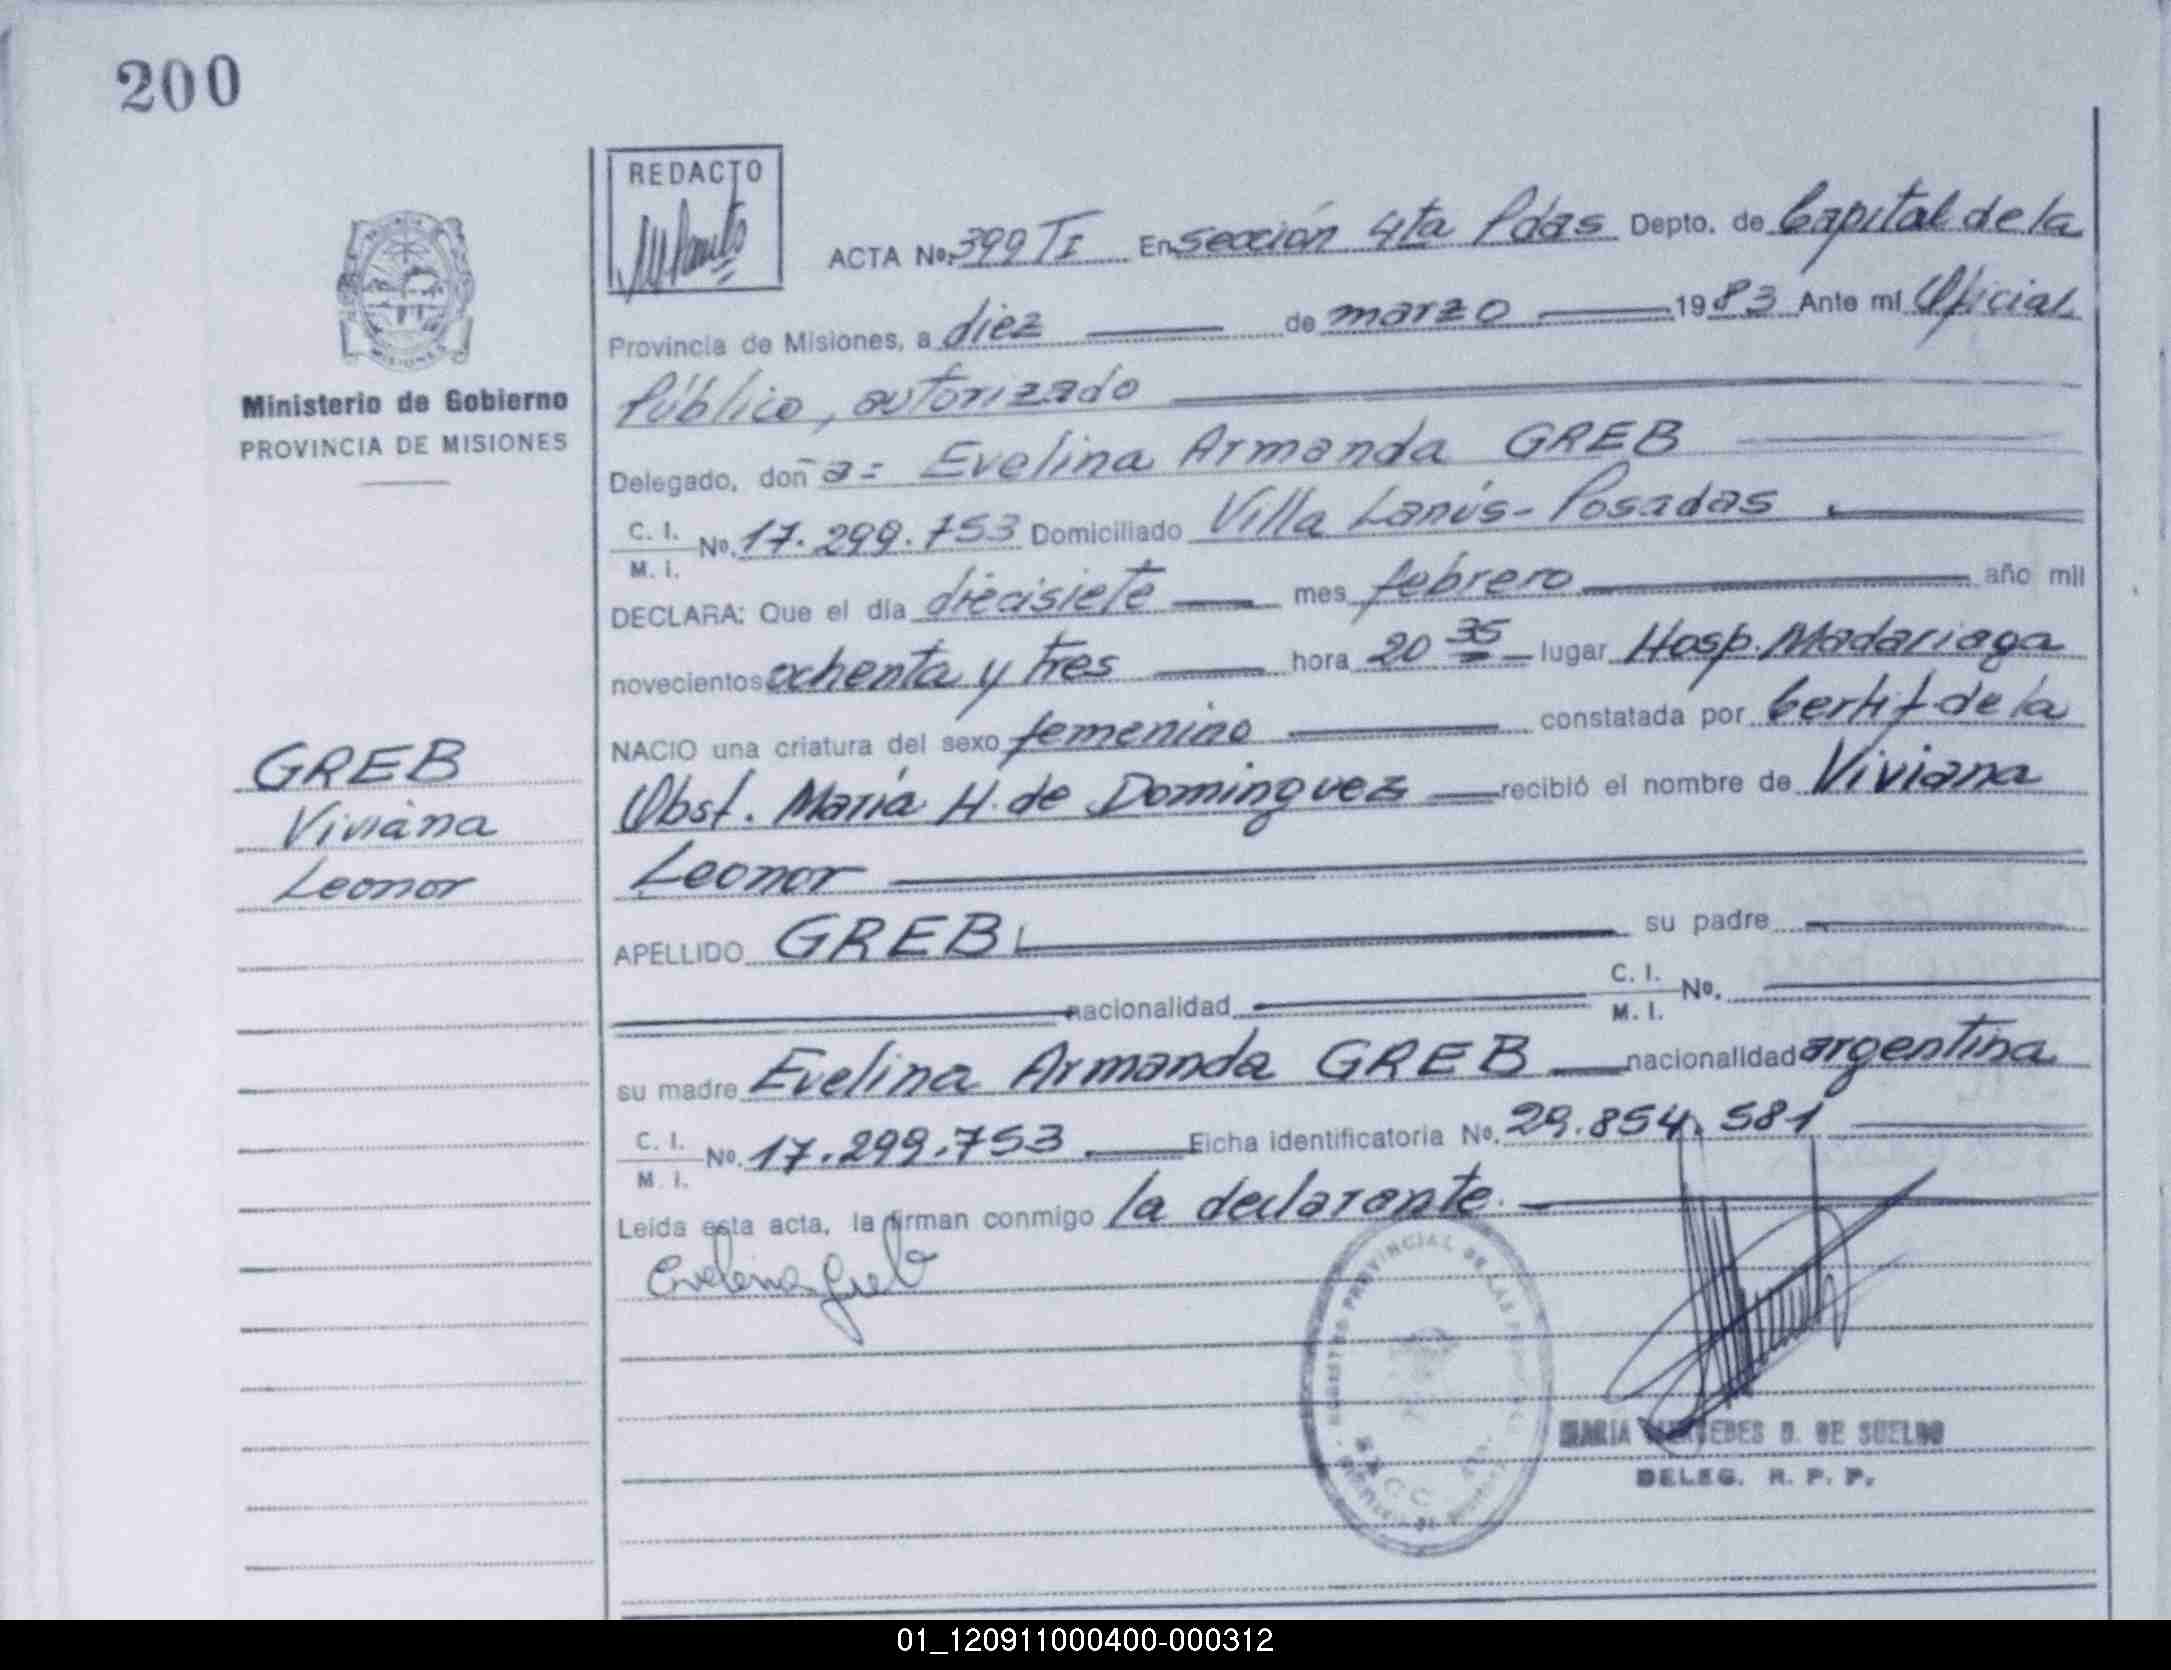 200
REDACTO
ACTA No. 399 TI En sección 4ta Pdas Depto. de Capital de la
Provincia de Misiones, a diez de marzo 1983 Ante mí Oficial
Público, autorizado
Ministerio de Gobierno
PROVINCIA DE MISIONES
Delegado, doña = Evelina Armanda GREB
C. I.
M. I. No. 17.299.753 Domiciliado Villa Lanús - Posadas
DECLARA: Que el día diecisiete mes febrero año mil
novecientos ochenta y tres hora 20 35 lugar Hosp. Madariaga
NACIO una criatura del sexo femenino constatada por Certif. de la
Obst. María H. de Dominguez recibió el nombre de Viviana
Leonor
GREB
Viviana
Leonor
APELLIDO GREB su padre
nacionalidad C. I.
M. I. No.
su madre Evelina Armanda GREB nacionalidad argentina
C. I.
M. I. No. 17.299.753 Ficha identificatoria No. 29.854.581
Leída esta acta, la firman conmigo la declarante.
Evelina Greb
PROVINCIAL DE LAS
MARIA MERCEDES D. DE SUELDO
DELEG. R. P. P.
01_120911000400-000312